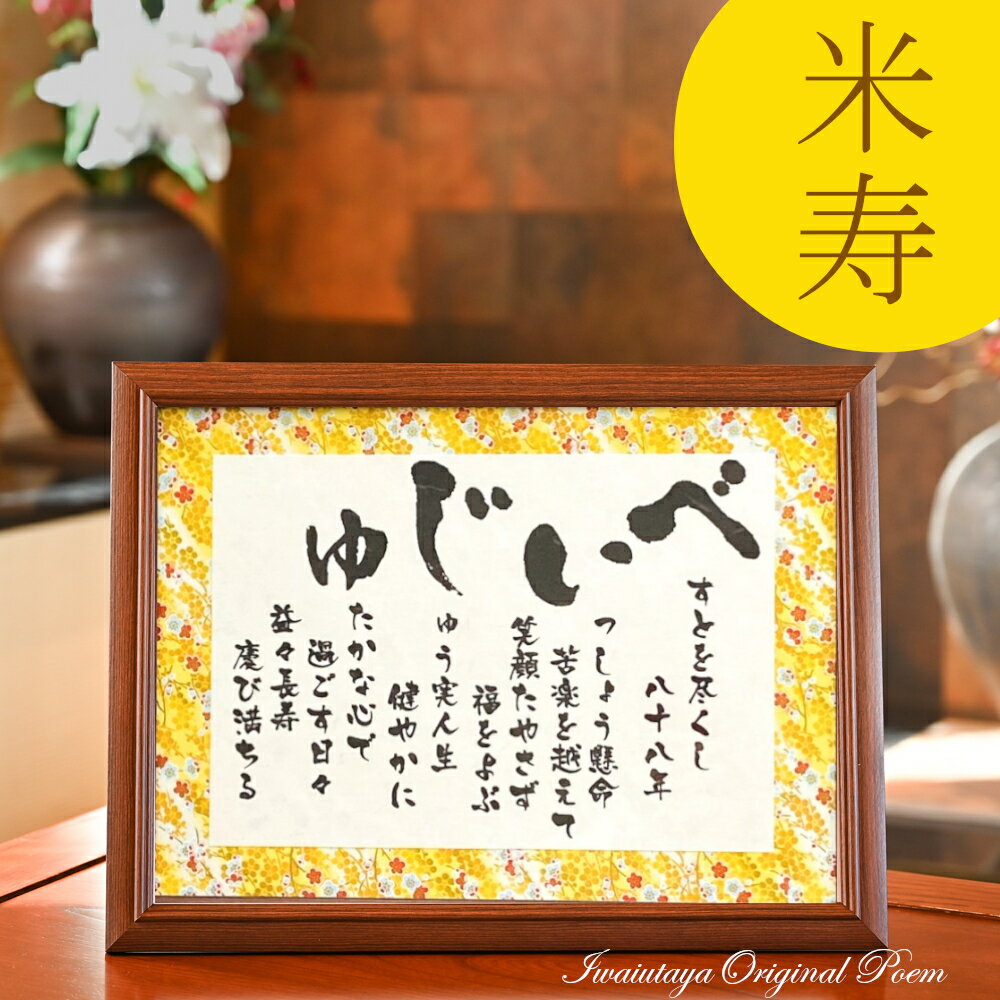 米寿
べいじゅ
すとを尽くし
八十八年
つしょう懸命
苦楽を越えて
笑顔たやさず
福をよぶ
ゆう実人生
健やかに
たかな心で
過ごす日々
益々長寿
慶び満ちる
Iwaiutaya Original Poem